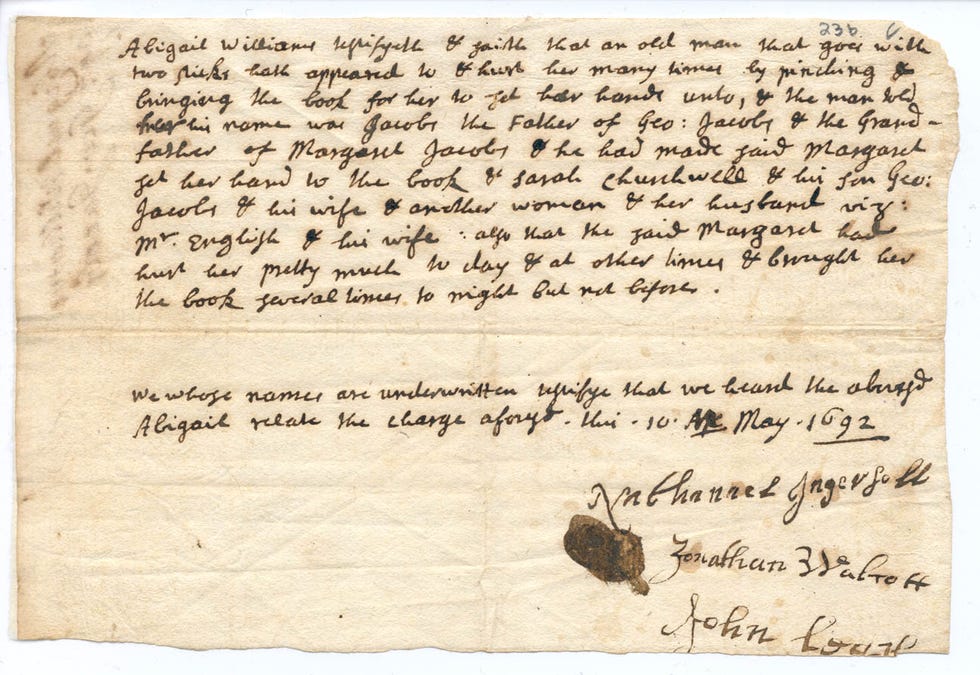 236
Abigail Williams testifyeth & saith that an old man that goes with
two sticks hath appeared to & hurt her many times by pinching &
bringing the book for her to set her hands unto, & the man told
her his name was Jacobs the Father of Geo: Jacobs & the Grand-
father of Margaret Jacobs & he had made said Margaret
set her hand to the book & Sarah Churchwell & his son Geo:
Jacobs & his wife & another woman & her husband viz:
Mr. English & his wife : also that the said Margaret had
hurt her pretty much to day & at other times & brought her
the book several times to night but not before.
we whose names are underwritten testifye that we heard the abovesd
Abigail relate the charge aforesd. this . 10. May . 1692
Nathaniel Ingersoll
Jonathan Walcott
John